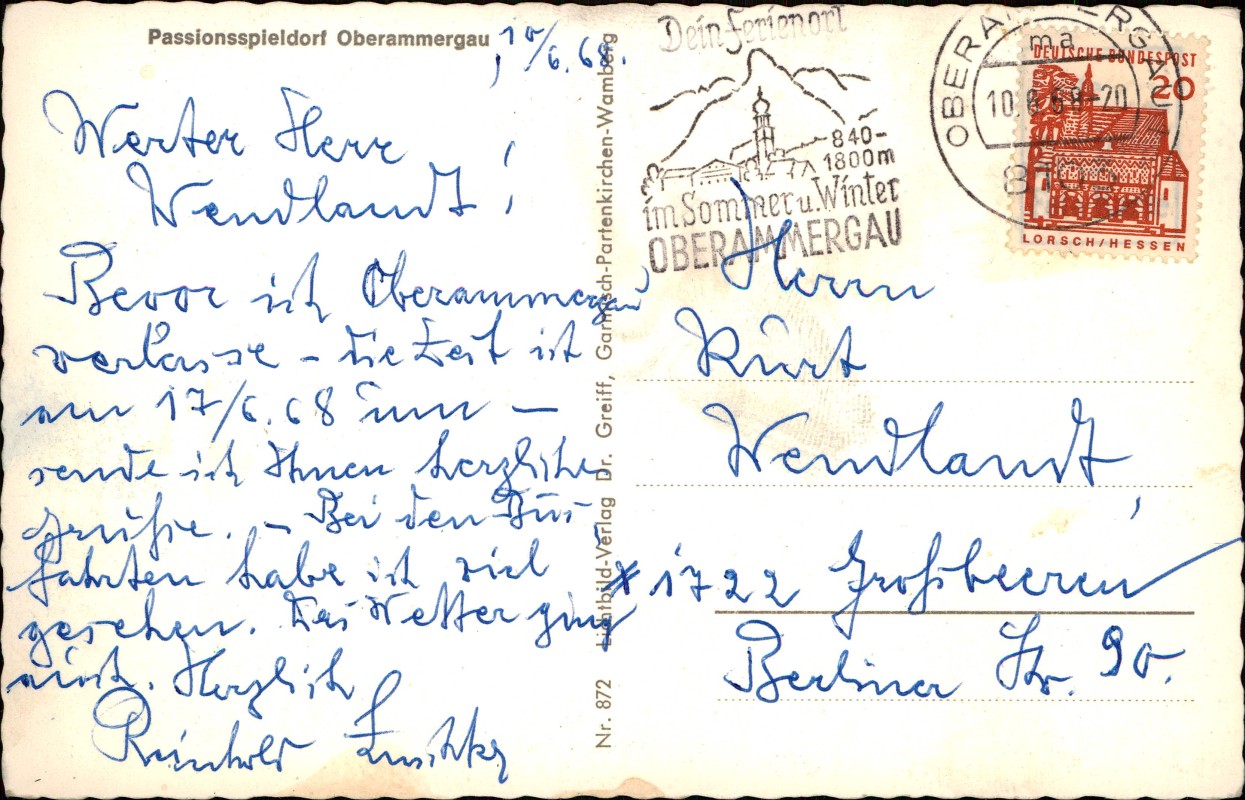 Passionsspieldorf Oberammergau, 10/6.68.
Werter Herr
Wendlandt!
Bevor ich Oberammergau
verlasse – die Zeit ist
am 17/6.68 um –
sende ich Ihnen herzliche
Grüße. – Bei den Aus-
fahrten habe ich viel
gesehen. Das Wetter ging
Herzlich
Reinhold
Nr. 872 Lichtbild-Verlag Dr. Greiff, Garmisch-Partenkirchen-Wamberg
Dein Ferienort
840-
1800m
im Sommer u. Winter
OBERAMMERGAU
OBERAMMERGAU
ma
10.6.68-20
DEUTSCHE BUNDESPOST
20
LORSCH/HESSEN
Herrn
Kurt
Wendlandt,
x 1722 Großbeeren
Berliner Str. 90.